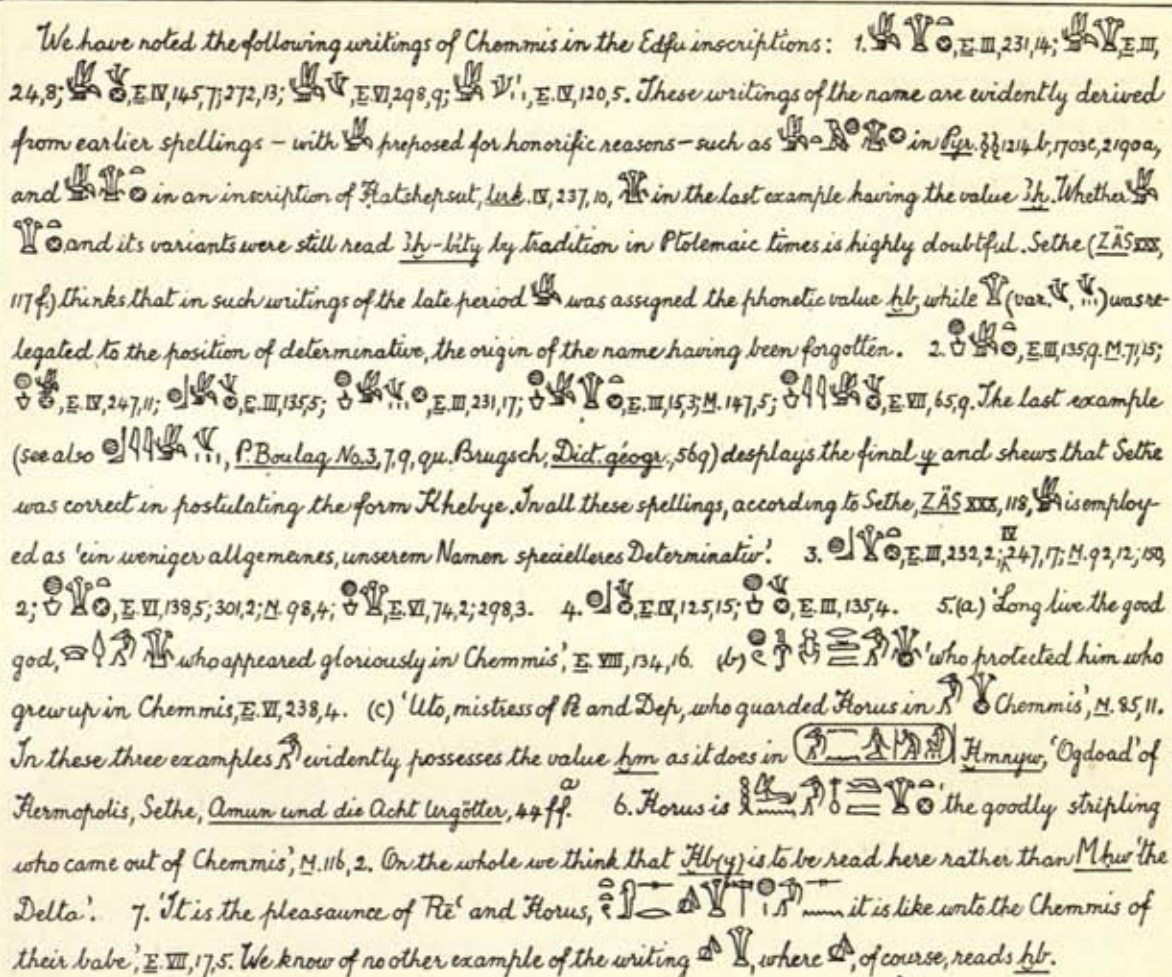 We have noted the following writings of Chemmis in the Edfu inscriptions: 1. , E. III, 231, 14; , E. III,
24, 8; , E. IV, 145, 7; 272, 13; , E. VI, 298, 9; , E. IV, 120, 5. These writings of the name are evidently derived
from earlier spellings – with preposed for honorific reasons – such as in Pyr. §§ 1214 b, 1703c, 2190a,
and in an inscription of Hatshepsut, Urk. IV, 237, 10, in the last example having the value ꜣḫ. Whether
and its variants were still read ꜣḫ-bı͗ty by tradition in Ptolemaic times is highly doubtful. Sethe (ZÄS XXX,
117 f.) thinks that in such writings of the late period was assigned the phonetic value ḫb, while (var. , ) was re-
legated to the position of determinative, the origin of the name having been forgotten. 2. , E. III, 135, 9. M. 71, 15;
, E. IV, 247, 11; , E. III, 135, 5; , E. III, 231, 17; , E. III, 15, 3; M. 147, 5; , E. VII, 65, 9. The last example
(see also , P. Boulaq No. 3, 7, 9, qu. Brugsch, Dict. géogr., 569) desplays the final y and shews that Sethe
was correct in postulating the form Khebye. In all these spellings, according to Sethe, ZÄS XXX, 118, is employ-
ed as 'ein weniger allgemeines, unserem Namen specielleres Determinativ'. 3. , E. III, 232, 2; IV 247, 17; M. 92, 12; 150,
2; , E. VI, 138, 5; 301, 2; M. 98, 4; , E. VI, 74, 2; 298, 3. 4. , E. IV, 125, 15; , E. III, 135, 4. 5. (a) 'Long live the good
god, who appeared gloriously in Chemmis', E. VIII, 134, 16. (b) 'who protected him who
grew up in Chemmis, E. VI, 238, 4. (c) 'Uto, mistress of Pe and Dep, who guarded Horus in Chemmis', M. 85, 11.
In these three examples evidently possesses the value ḫm as it does in Ḫmnyw, 'Ogdoad' of
Hermopolis, Sethe, Amun und die Acht Urgötter, 44 ff. a 6. Horus is 'the goodly stripling
who came out of Chemmis', M. 116, 2. On the whole we think that Ḫb(y) is to be read here rather than Mḥw 'the
Delta'. 7. 'It is the pleasaunce of Rēꜥ and Horus, it is like unto the Chemmis of
their babe', E. VII, 17, 5. We know of no other example of the writing , where , of course, reads ḫb.